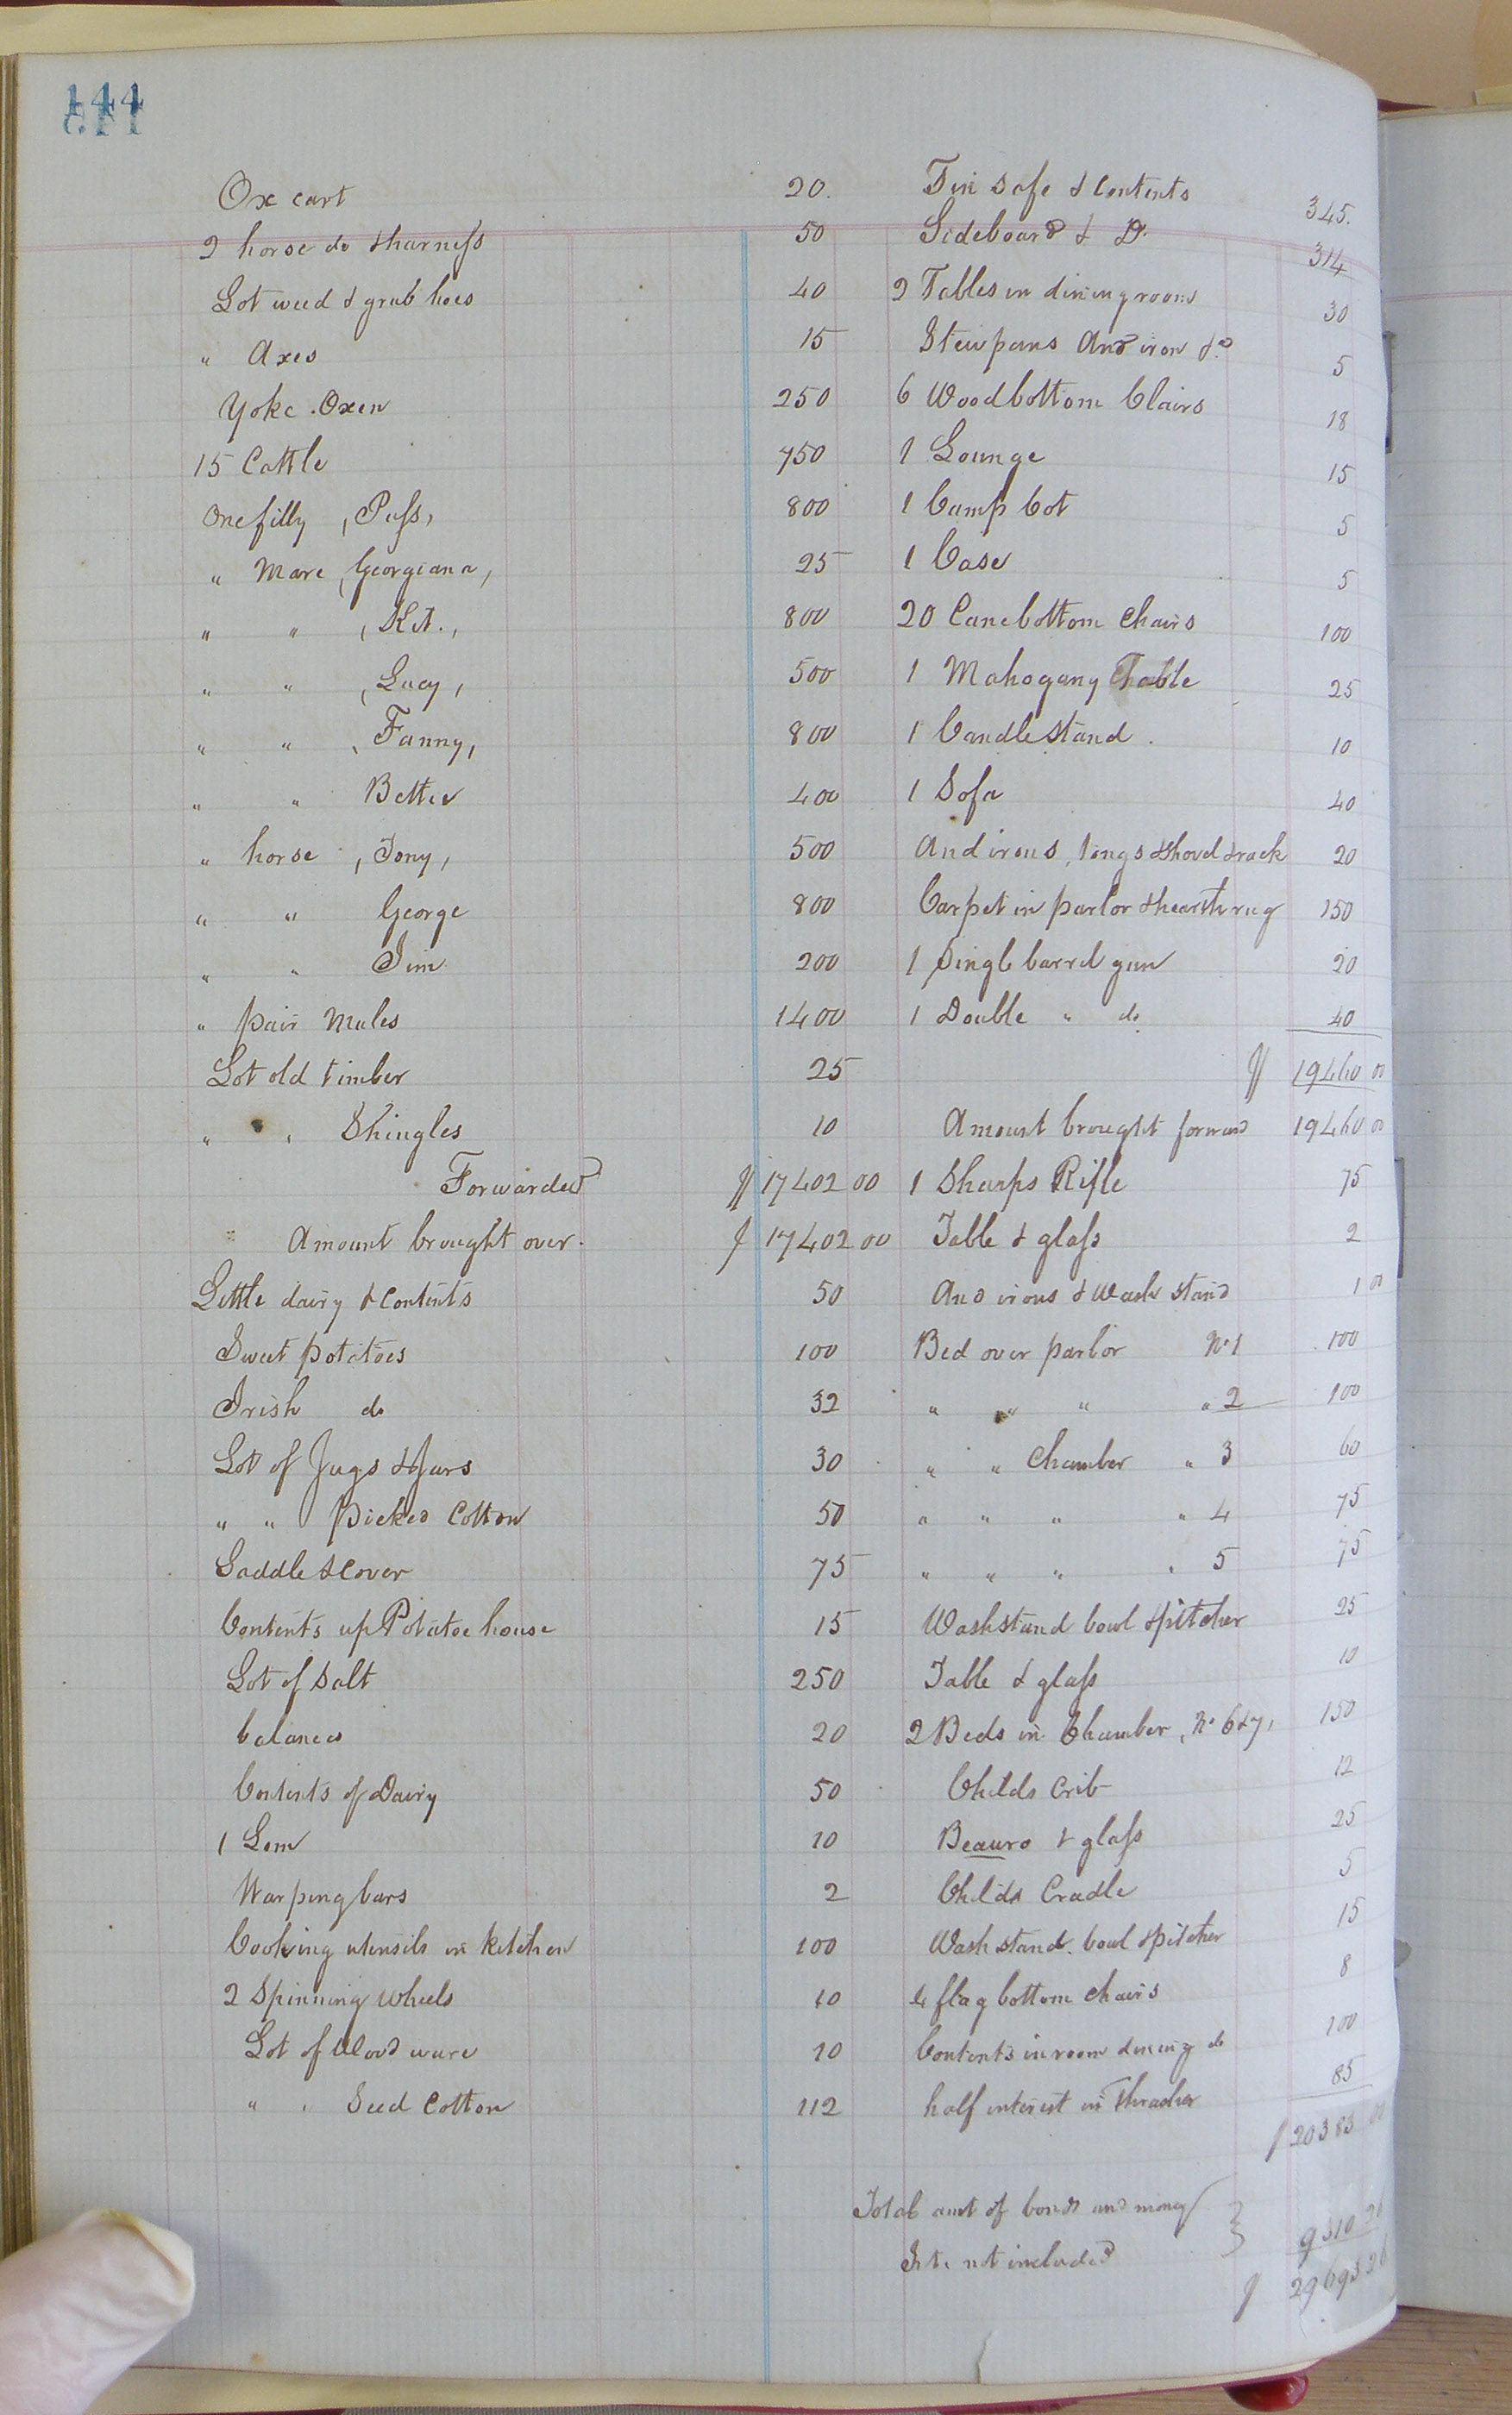 144
Ox cart 20.
2 horse do & harness 50
Lot weed & grub hoes 40
" Axes 15
Yoke Oxen 250
15 Cattle 750
One filly, Puss, 800
" Mare, Georgiana, 25
" ", Kit., 800
" ", Lucy, 500
" ", Fanny, 800
" " Bettie 400
" horse, Tony, 500
" " George 800
" " Jim 200
" pair Mules 1400
Lot old timber 25
" " Shingles 10
Forwarded $17402 00
Amount brought over. $17402 00
Little dairy & Contents 50
Sweet potatoes 100
Irish do 32
Lot of Jugs & Jars 30
" " Picked Cotton 50
Saddle & Cover 75
Contents up Potatoe house 15
Lot of Salt 250
balances 20
Contents of Dairy 50
1 Lom 10
Warping bars 2
Cooking utensils in Kitchen 100
2 Spinning Wheels 10
Lot of Wood ware 10
" " Seed Cotton 112
Tin Safe & Contents 345.
Sideboard & D. 314
2 Tables in dining room 30
Stewpans And iron &c 5
6 Woodbottom Chairs 18
1 Lounge 15
1 Camp Cot 5
1 Case 5
20 Canebottom Chairs 100
1 Mahogany Table 25
1 Candlestand. 10
1 Sofa 40
Andirons, tongs & shovel & rack 20
Carpet in parlor & hearth rug 150
1 Single barrel gun 20
1 Double " do 40
$ 19460 00
Amount brought forward 19460 00
1 Sharps Rifle 75
Table & glass 2
And irons & Wash stand 1 00
Bed over parlor No 1 100
" " " " 2 100
" " Chamber " 3 60
" " " " 4 75
" " " " 5 75
Washstand bowl & pitcher 25
Table & glass 10
2 Beds in Chamber, No 6 & 7, 150
Childs Crib 12
Beauro & glass 25
Childs Cradle 5
Wash stand. bowl & Pitcher 15
4 flag bottom chairs 8
Contents in room dining do 100
half interest in Thrasher 85
$ 20383 00
Total amt of bonds and money }
Int. not included } 9310 26
$ 29693 26